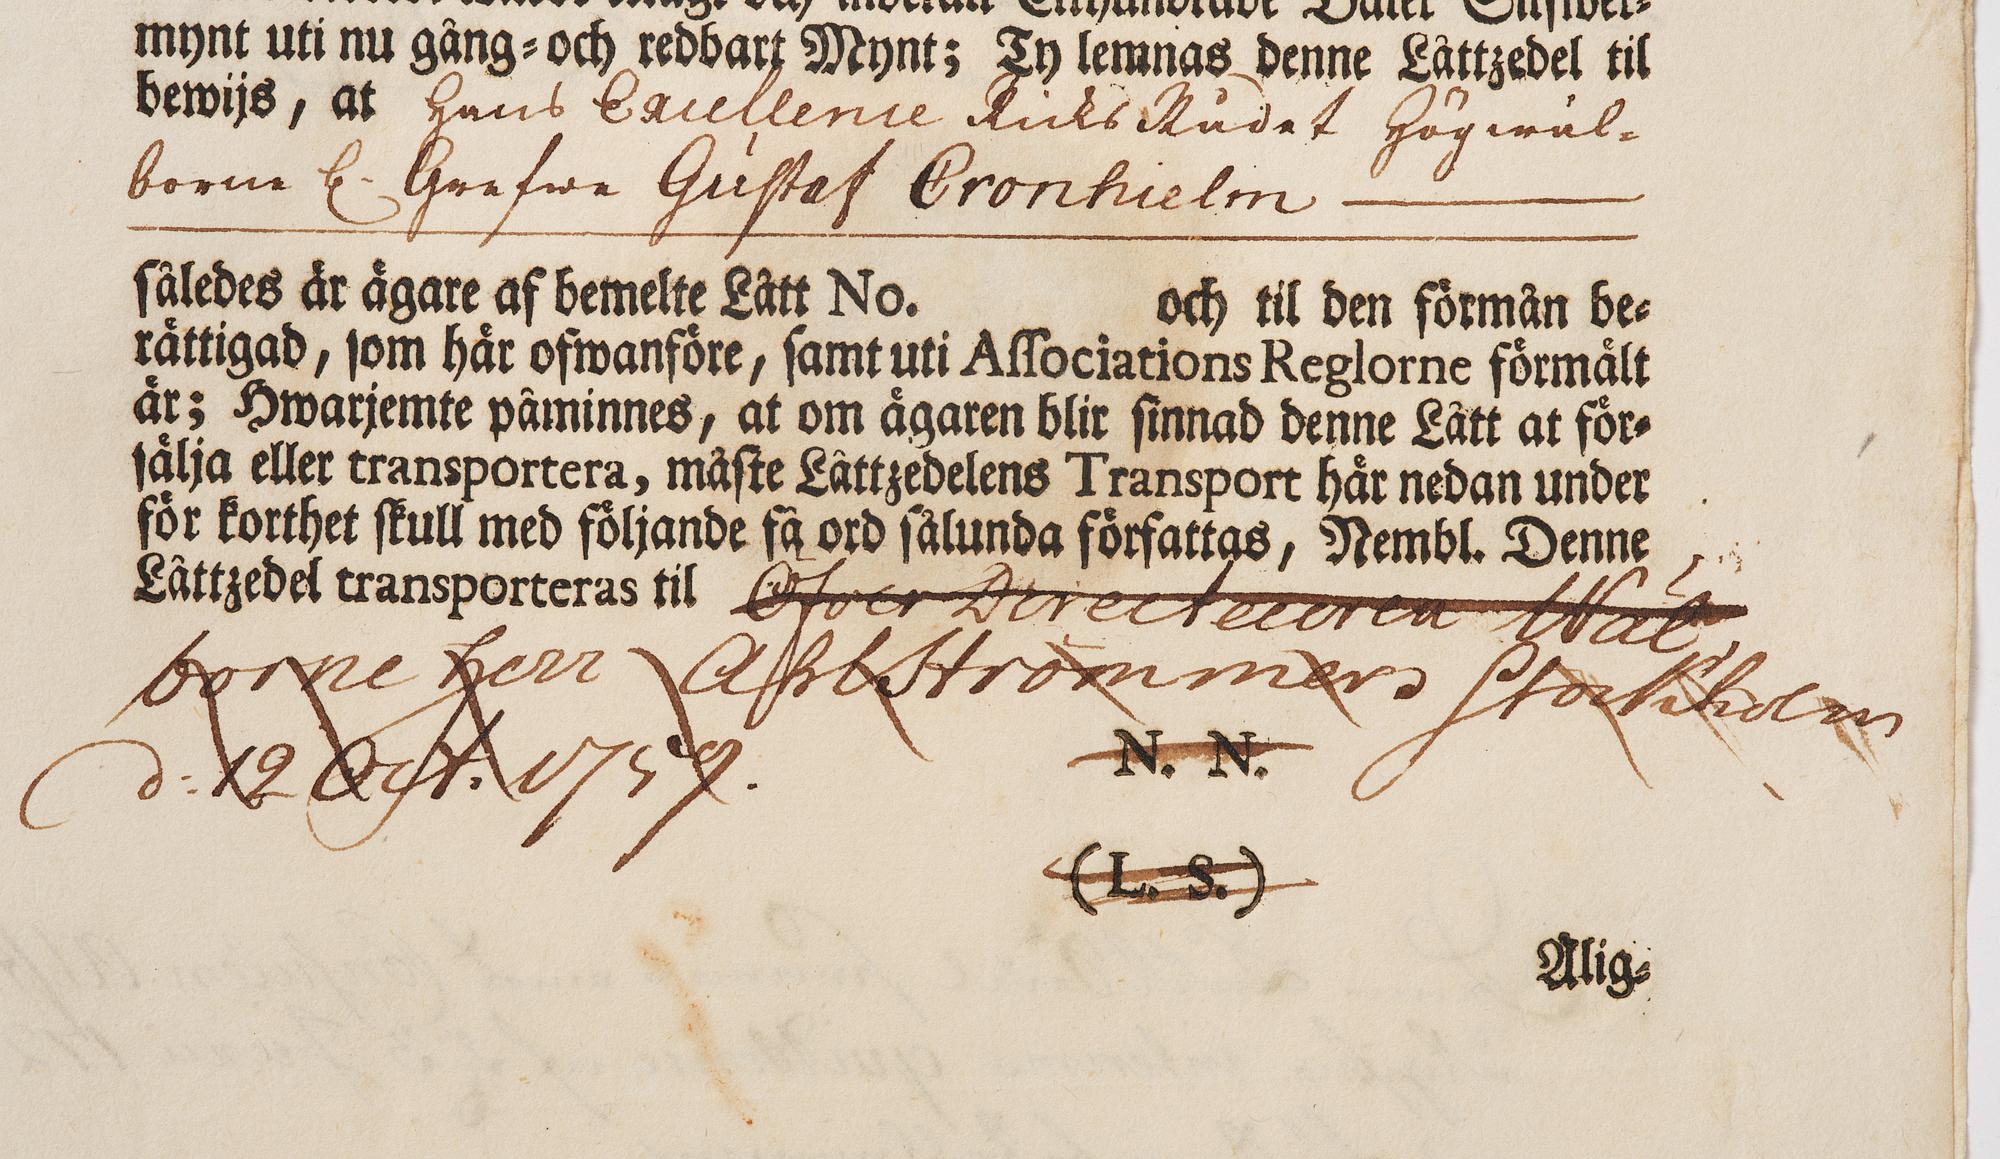 Einhundrade Daler Silfwer-
mynt uti nu gång- och redbart Mynt; Ty lemnas denne Låttzedel til
bewijs, at Hans Excellence Ricks Rådet Högwäl-
borne H. Grefwe Gustaf Cronhielm
således är ägare af bemelte Lått No. och til den förmån be-
rättigad, som här ofwanföre, samt uti Associations Reglorne förmält
är; Hwarjemte påminnes, at om ägaren blir sinnad denne Lått at för-
sälja eller transportera, måste Låttzedelens Transport här nedan under
för korthet skull med följande få ord sålunda författas, Nembl. Denne
Låttzedel transporteras til Öfwer Directeuren Wäl
borne Herr Ahlströmmers Stockholm
d: 12 Oct. 1759.
N. N.
(L. S.)
Alig-